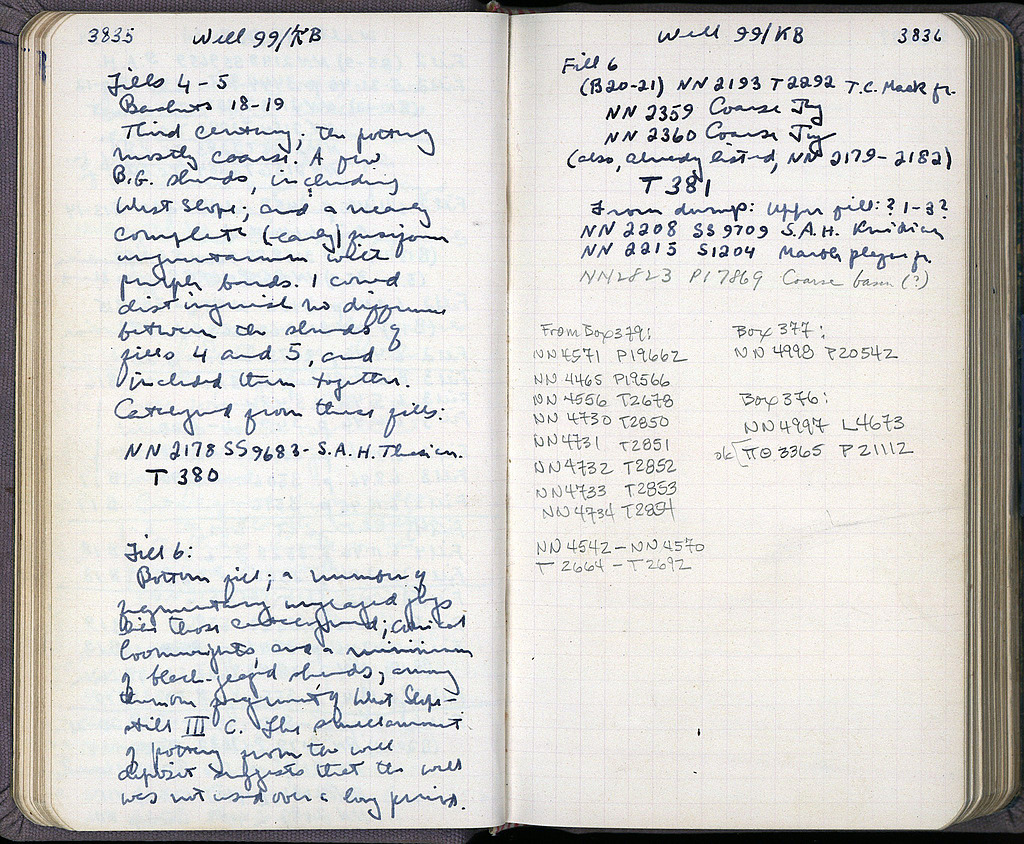 3835 Well 99/KB
Fills 4-5
Baskets 18-19
Third century; the pottery
mostly coarse. A few
B.G. sherds, including
West Slope; and a nearly
complete (-early) fusiform
unguentarium with
purple bands. I could
distinguish no difference
between the sherds of
fills 4 and 5, and
included them together.
Catalogued from these fills:
NN 2178 SS 9683- S.A.H. Thasian.
T 380
Fill 6:
Bottom fill; a number of
fragmentary unglazed jugs
like those catalogued; conical
loomweights, and a minimum
of black-glazed sherds, among
them one fragment of West Slope-
still III C. The small amount
of pottery from the well
deposit suggests that the well
was not used over a long period.
Well 99/KB 3836
Fill 6
(B20-21) NN 2193 T2292 T.C. Mask fr.
NN 2359 Coarse Jug
NN 2360 Coarse Jug
(also, already listed, NN 2179-2182)
T 381
From dump: Upper fill: ? 1-3?
NN 2208 SS 9709 S.A.H. Knidian
NN 2215 S1204 Marble plaque fr.
NN2823 P17869 Coarse basin (?)
From Box 379:
NN4571 P19662
NN 4465 P19566
NN 4556 T2678
NN 4730 T2850
NN4731 T2851
NN4732 T2852
NN4733 T2853
NN4734 T2854
NN 4542-NN4570
T 2664-T2692
Box 377:
NN 4998 P20542
Box 376:
NN4997 L4673
ok [ΠΘ 3365 P21112